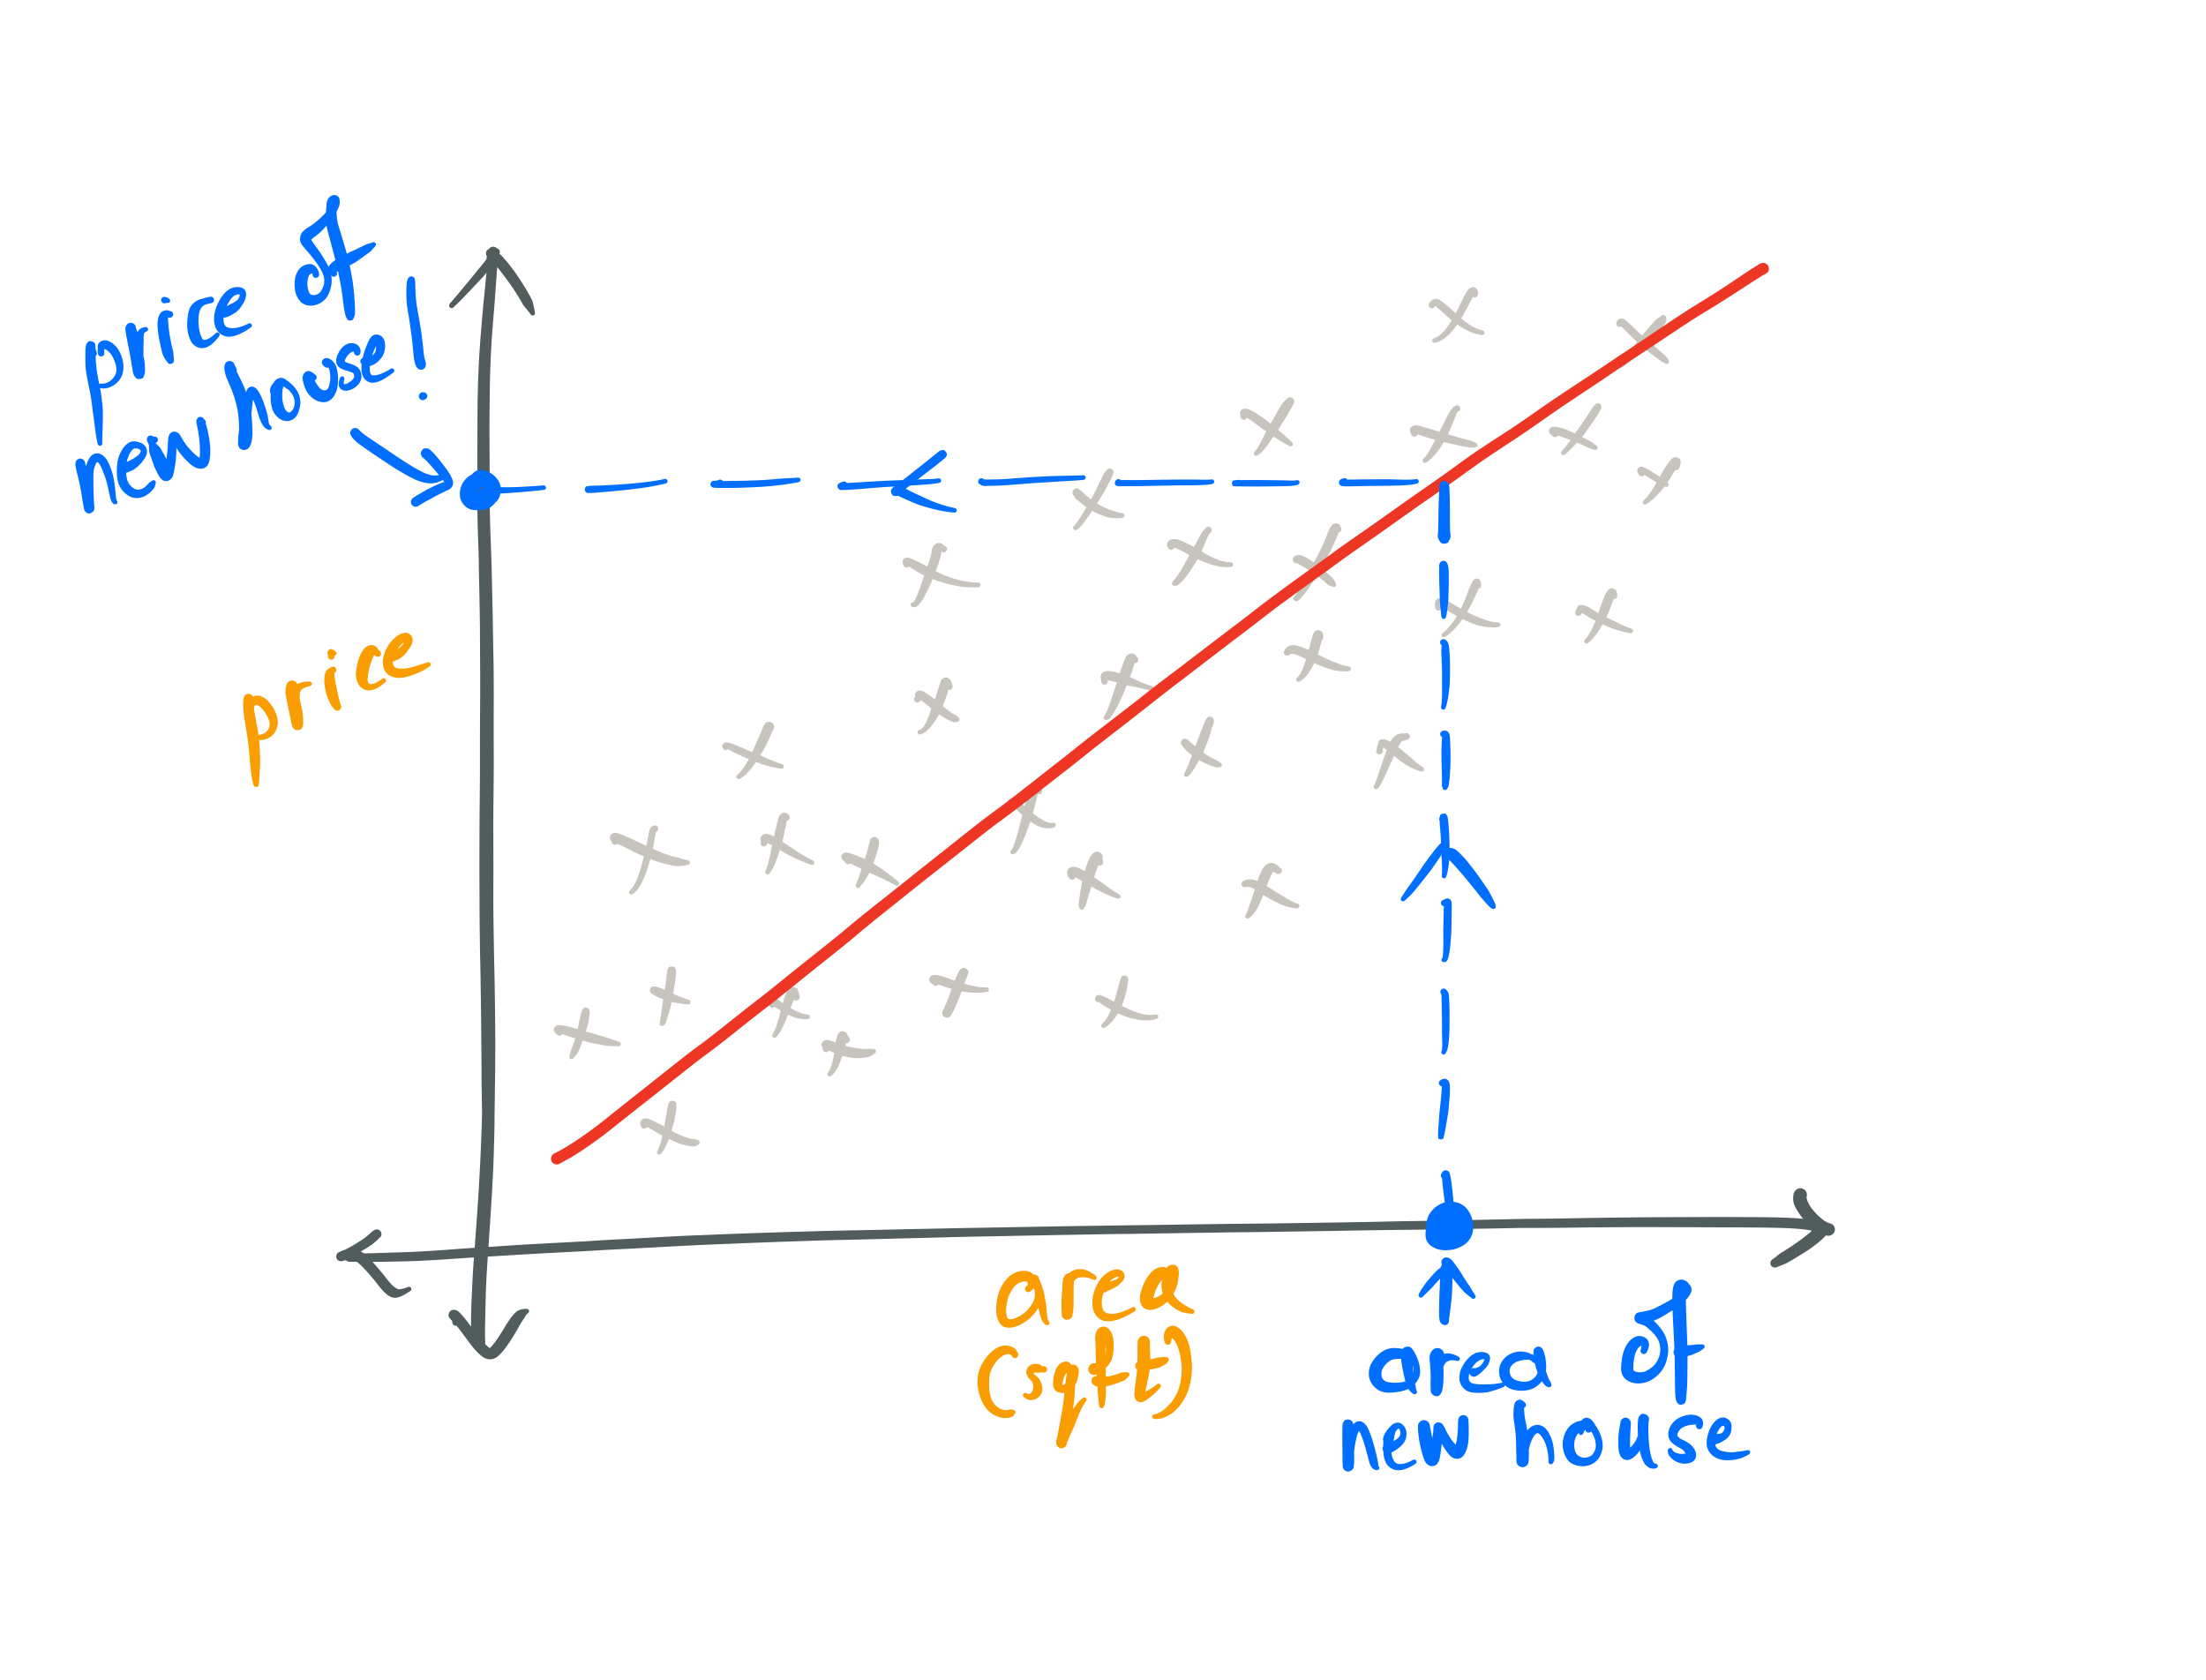 price of
new house!
price
area
(sqft)
area of
new house